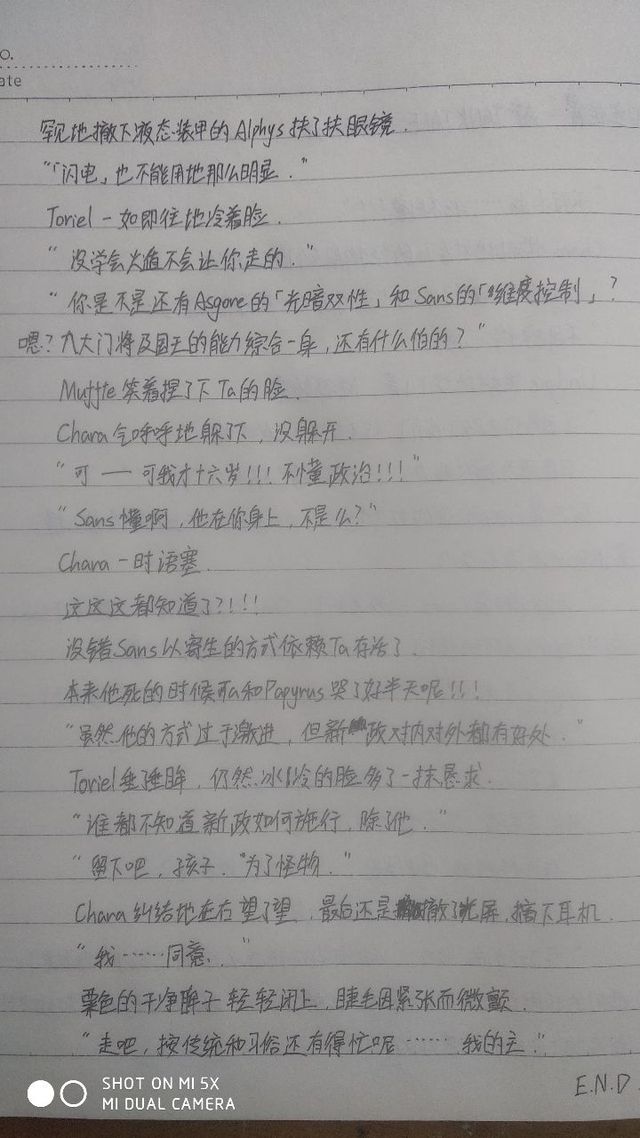 o.
ate
罕见地撤下液态装甲的Alphys扶了扶眼镜.
“「闪电」也不能用地那么明显.”
Toriel一如即往地冷着脸.
“没学会火值不会让你走的.”
“你是不是还有Asgore的「光暗双性」和Sans的「维度控制」?
嗯?六大门将及国王的能力综合一身,还有什么怕的?”
Muffte笑着捏了下Ta的脸.
Chara气呼呼地躲了下,没躲开.
“可——可我才十六岁!!!不懂政治!!!”
“Sans懂啊,他在你身上,不是么?”
Chara一时语塞.
这这这都知道了?!!!
没错Sans以寄生的方式依赖Ta存活了.
本来他死的时候Ta和Papyrus哭了好半天呢!!!
“虽然他的方式过于激进,但新政对内对外都有好处.”
Toriel垂垂眸,仍然冰冷的脸多了一抹恳求.
“谁都不知道新政如何施行,除了他.”
“留下吧,孩子.“为了怪物.”
Chara纠结地左右望了望,最后还是撤了光屏,摘下耳机.
“我……同意.”
栗色的干净眸子轻轻闭上,睫毛因紧张而微颤.
“走吧,按传统和习俗还有得忙呢……我的主.”
E.N.D
SHOT ON MI 5X
MI DUAL CAMERA